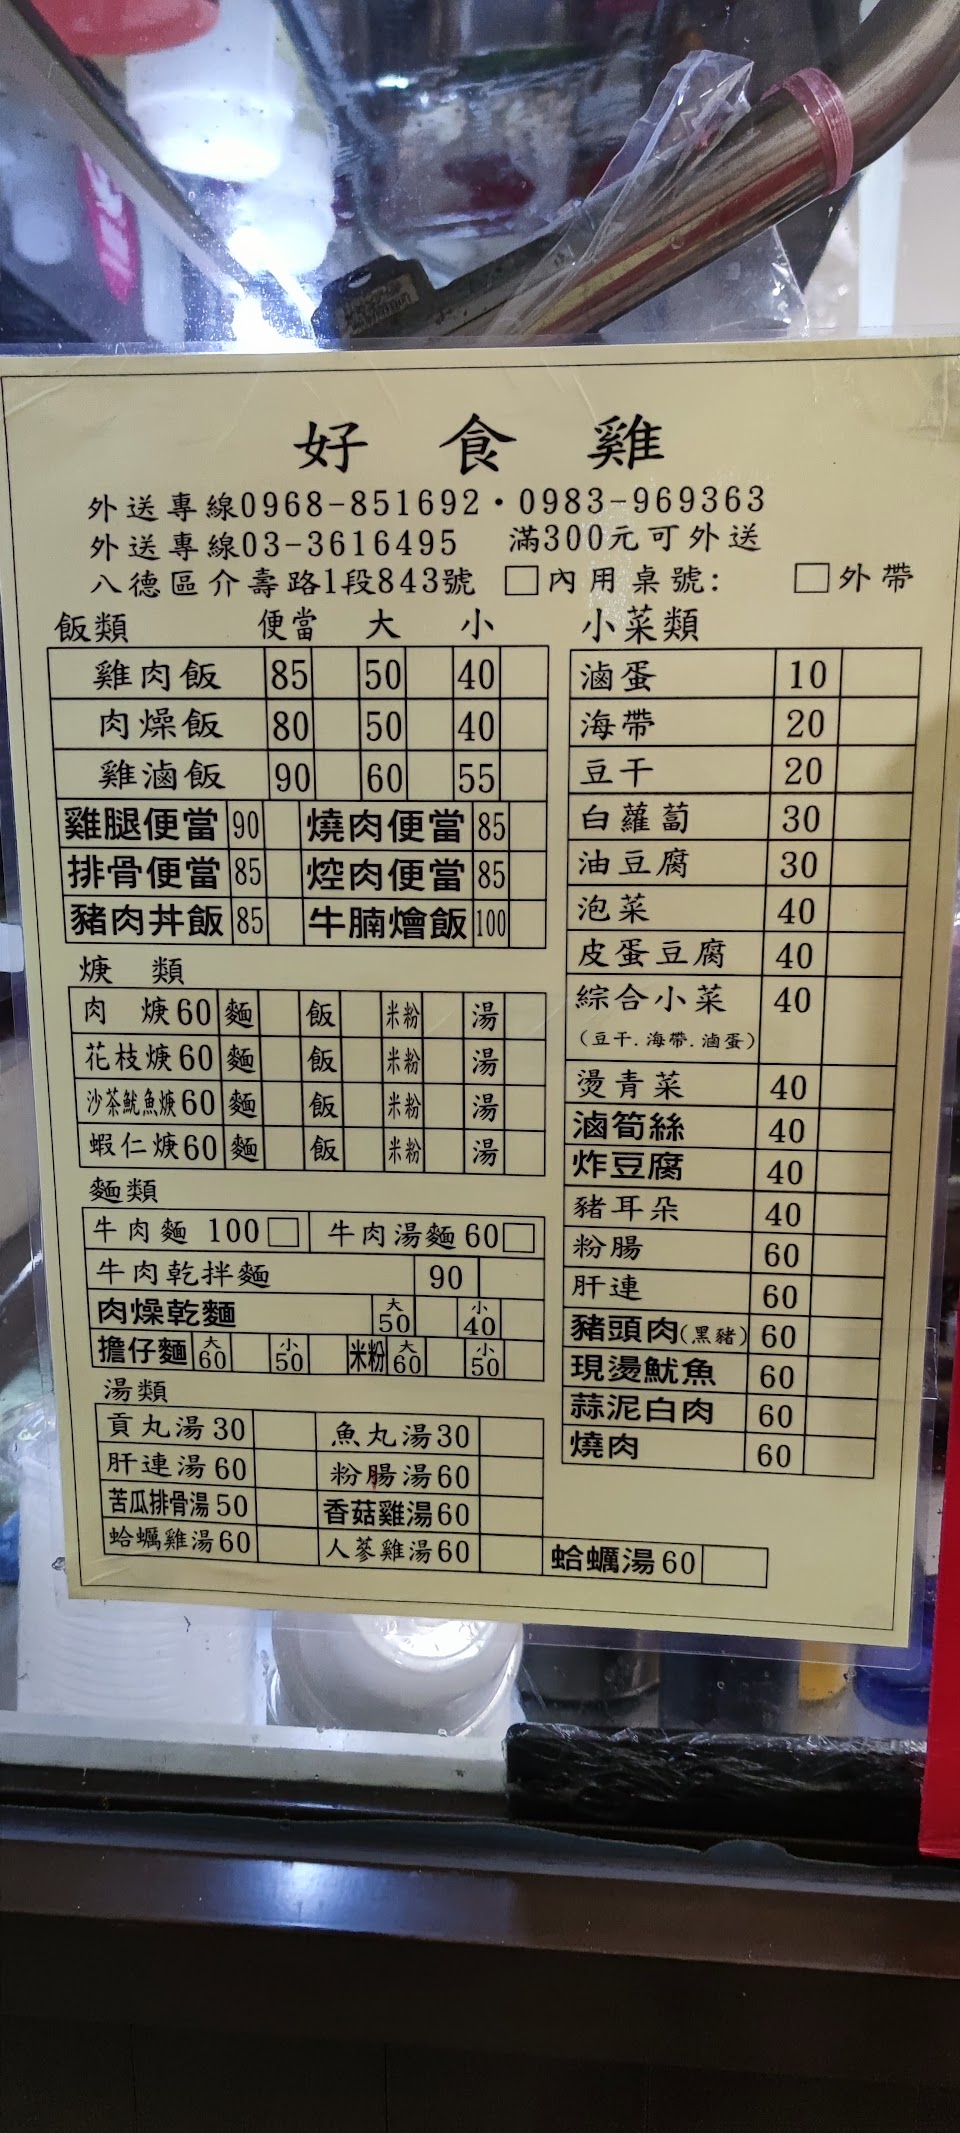 好食雞
外送專線0968-851692・0983-969363
外送專線03-3616495 滿300元可外送
八德區介壽路1段843號 □內用桌號: □外帶
飯類 便當 大 小
雞肉飯 85 50 40
肉燥飯 80 50 40
雞滷飯 90 60 55
雞腿便當 90 燒肉便當 85
排骨便當 85 焢肉便當 85
豬肉丼飯 85 牛腩燴飯 100
焿類
肉焿60 麵 飯 米粉 湯
花枝焿60 麵 飯 米粉 湯
沙茶魷魚焿60 麵 飯 米粉 湯
蝦仁焿60 麵 飯 米粉 湯
麵類
牛肉麵 100□ 牛肉湯麵60□
牛肉乾拌麵 90
肉燥乾麵 大50 小40
擔仔麵 大60 小50 米粉 大60 小50
湯類
貢丸湯30 魚丸湯30
肝連湯60 粉腸湯60
苦瓜排骨湯50 香菇雞湯60
蛤蠣雞湯60 人蔘雞湯60 蛤蠣湯60
小菜類
滷蛋 10
海帶 20
豆干 20
白蘿蔔 30
油豆腐 30
泡菜 40
皮蛋豆腐 40
綜合小菜 40
(豆干.海帶.滷蛋)
燙青菜 40
滷筍絲 40
炸豆腐 40
豬耳朵 40
粉腸 60
肝連 60
豬頭肉(黑豬) 60
現燙魷魚 60
蒜泥白肉 60
燒肉 60